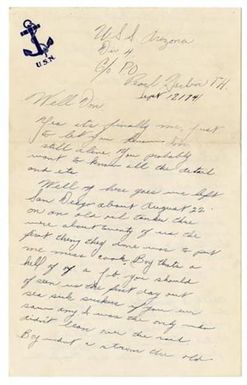 U.S.N.
U.S.S. Arizona
Div 4
C/o P.O.
Pearl Harbor T.H.
Sept 12/41
Well
Yes its finally me, just
to let you know Im
still alive. You probably
want to know all the detail
and etc
Well here goes we left
San Diego about August 22
on an old oil tanker there
were about twenty of us the
first thing they done was to put
me mess cook. Boy thats a
hell of a job you should
of seen us the first day out
sea sick suckers if you ever
saw any I was the only one
didn't lean over the rail
Boy what a storm the old